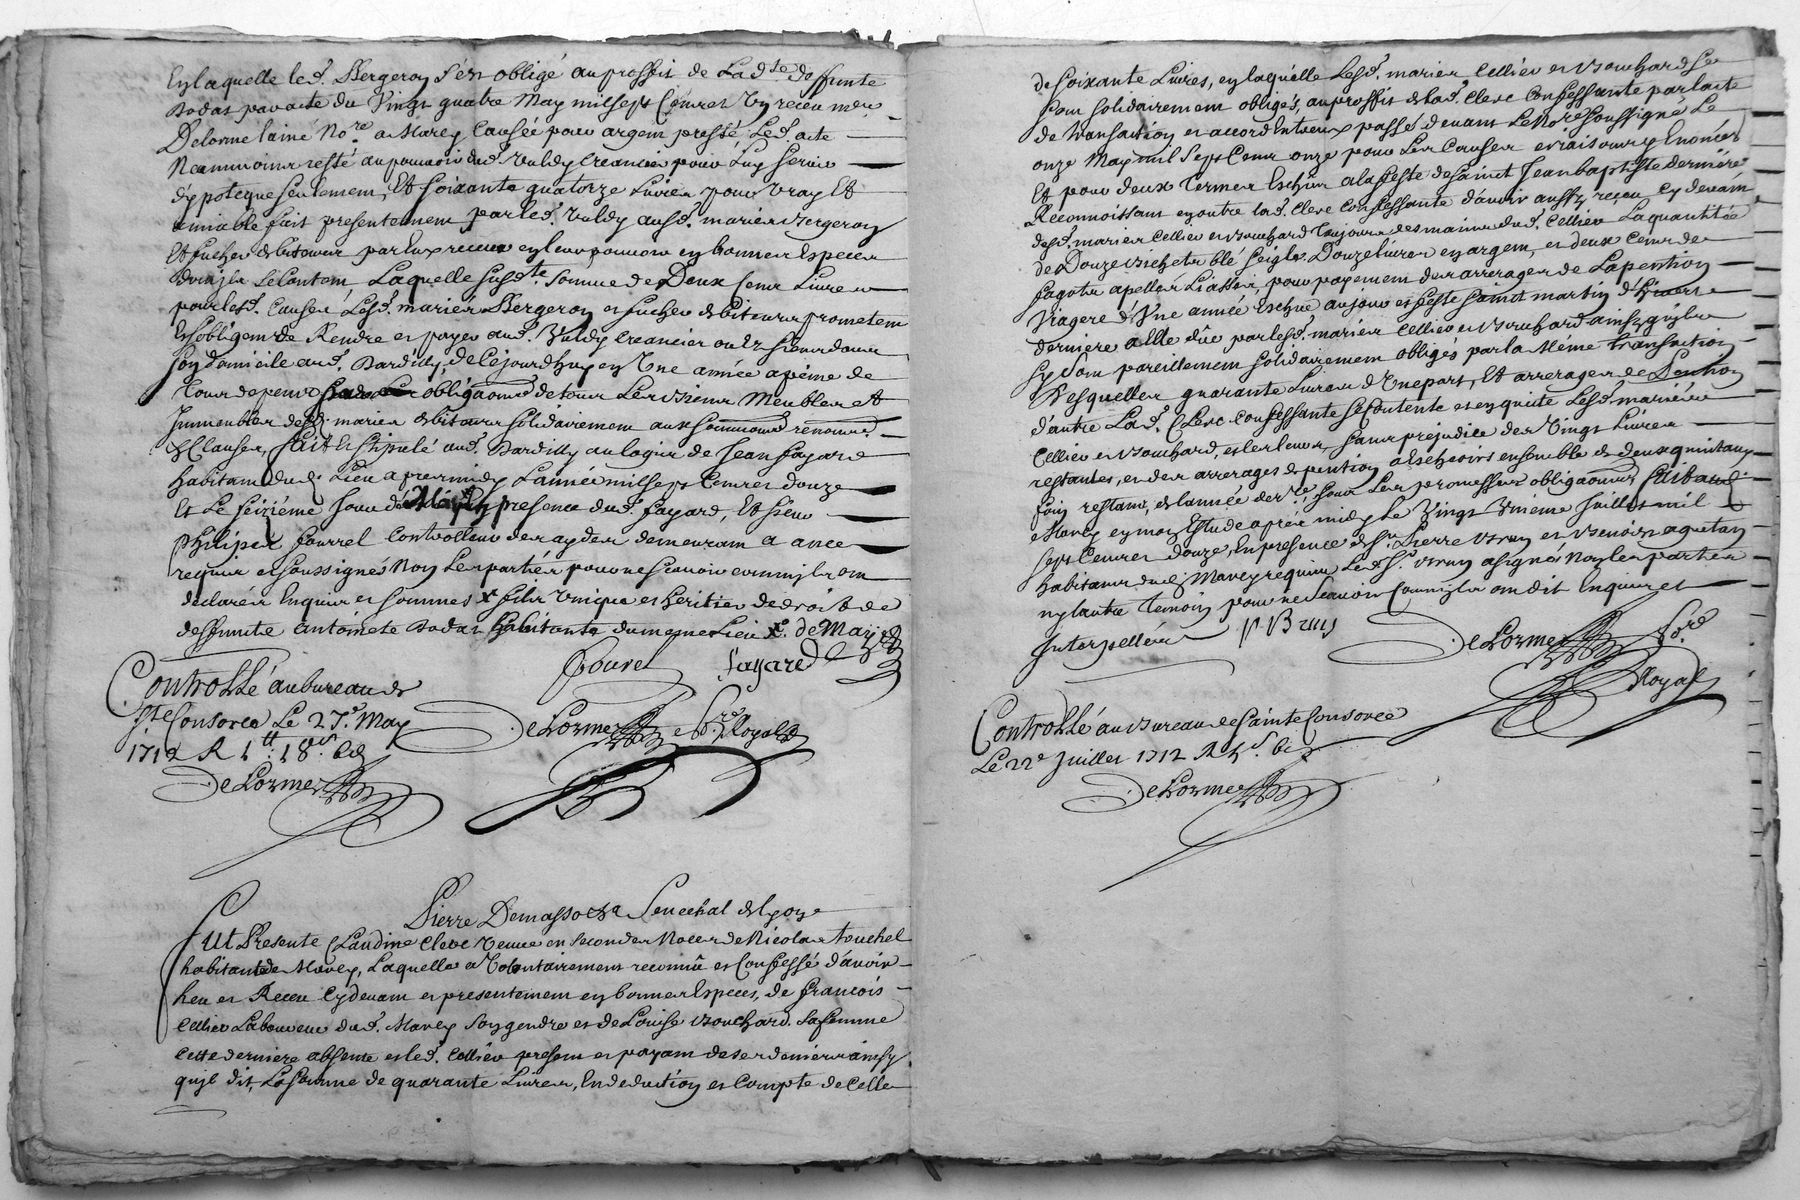 En laquelle led. Bergeron s'est obligé au proffit de lad.te deffunte
Dodat par acte du vingt quatre may mil sept cent et un receu me
Delorme laîné No.re a Marcy causée pour argent presté, led. acte
Neammoins resté au pouvoir dud. Valdy creancier pour luy servir
d'ypoteque seulement, Et soixante quatorze livres pour vray Et
amiable fait presentement par led. Valdy ausd. mariés Bergeron
Et fucher debiteurs par eux receue en leur pouvoir en bonnes Especes
dont ils se contentent Laquelle susd.te somme de Deux cent Livres
pour lesd. causes lesd. mariés Bergeron et fucher debiteurs prometent
Et s'obligent de Rendre et payer aud. Valdy creancier ou Et
son domicile aud. Dardilly, de ce jourd'huy en Une année a peine de
tous depens obliga(on)s de tous Les biens Meubles et
Immeubles desd. mariés debiteurs solidairement aux
& Clauses, fait Et stipulé aud. Dardilly au logis de Jean fayard
habitant dud. Lieu apres midy L'année mil sept cent et douze
Et Le seizième Jour de May En presence dud. fayard, Et sieur
philipes fourrel controlleur des aydes demeurant a ance
requis et soussignés Non Les parties pour ne scavoir comm'ils ont
declarés Enquis et sommés x fils Unique et heritier de droit de
deffunte antoinete Dodat habitante du mesme Lieu x. de May
Fourel Fayard
Controllé au bureau de
Ste Consorce Le 27e May
1712 R 1tt 18s
DeLorme No.re Royal
DeLorme
Pierre Demasso Senechal de Lyon
Fut Presente Claudine Clerc veuve en secondes Noces de Nicolas touchel
habitante de Marcy, Laquelle a Volontairement reconnû et confessé d'avoir
heu et Receu cy devant et presentement en bonnes Especes, de francois
Cellier Laboureur dud. Marcy son gendre et de Louise Bouchard sa femme
cette derniere absente et led. Cellier present et payant de ses deniers ainsy
qu'il dit, La somme de quarante Livres, En deduction et compte de celle
de soixante Livres, en laquelle Lesd. mariés Cellier et Bouchard se
sont solidairement obligés, au proffit de lad. Clerc Confessante par lacte
de transaction et accord Entreux passé devant Le No.re soussigné Le
onze May mil sept cent onze pour Les causes et raisons y Enoncés
Et pour deux termes Eschus a la feste de saint Jean baptiste derniere
Reconnoissant en outre lad. Clerc confessante d'avoir aussy receu cy devant
desd. mariés Cellier et Bouchard toujours des mains dud. Cellier La quantité
de Douze bichets blé seigle, Douze livres en argent, et deux cent de
fagots apellés Liasses, pour payement des arrerages de la pention
viagere d'Une année Eschue au jour et feste saint martin d'hivert
derniere a elle dûe par lesd. mariés Cellier et Bouchard ainsy qu'ils
sy sont pareillement solidairement obligés par la Même transaction
Desquelles quarante Livres d'Une part, Et arrerages de Pention
d'autre Lad. Clerc confessante se contente et en quitte Lesd. mariés
Cellier et Bouchard, et les leurs, sans prejudice des Vingt Livres
restantes, et des arrerages de pention a Eschoir ensemble de deux quintaux
foin restant, de l'année der.re sous Les promesses obliga(on)s
Marcy en mon Estude après midy Le Vingt Unieme Juillet mil
sept cent et douze, En presence de Sr. Pierre Brun et Benoist
habitants dud. Marcy requis Led. Sr. Brun a signé Non les parties
ny lautre temoin pour ne scavoir comm'ils ont dit Enquis et
Interpellés P Brun
DeLorme No.re
Royal
Controllé au Bureau de Sainte Consorce
Le 22e Juillet 1712 R
DeLorme